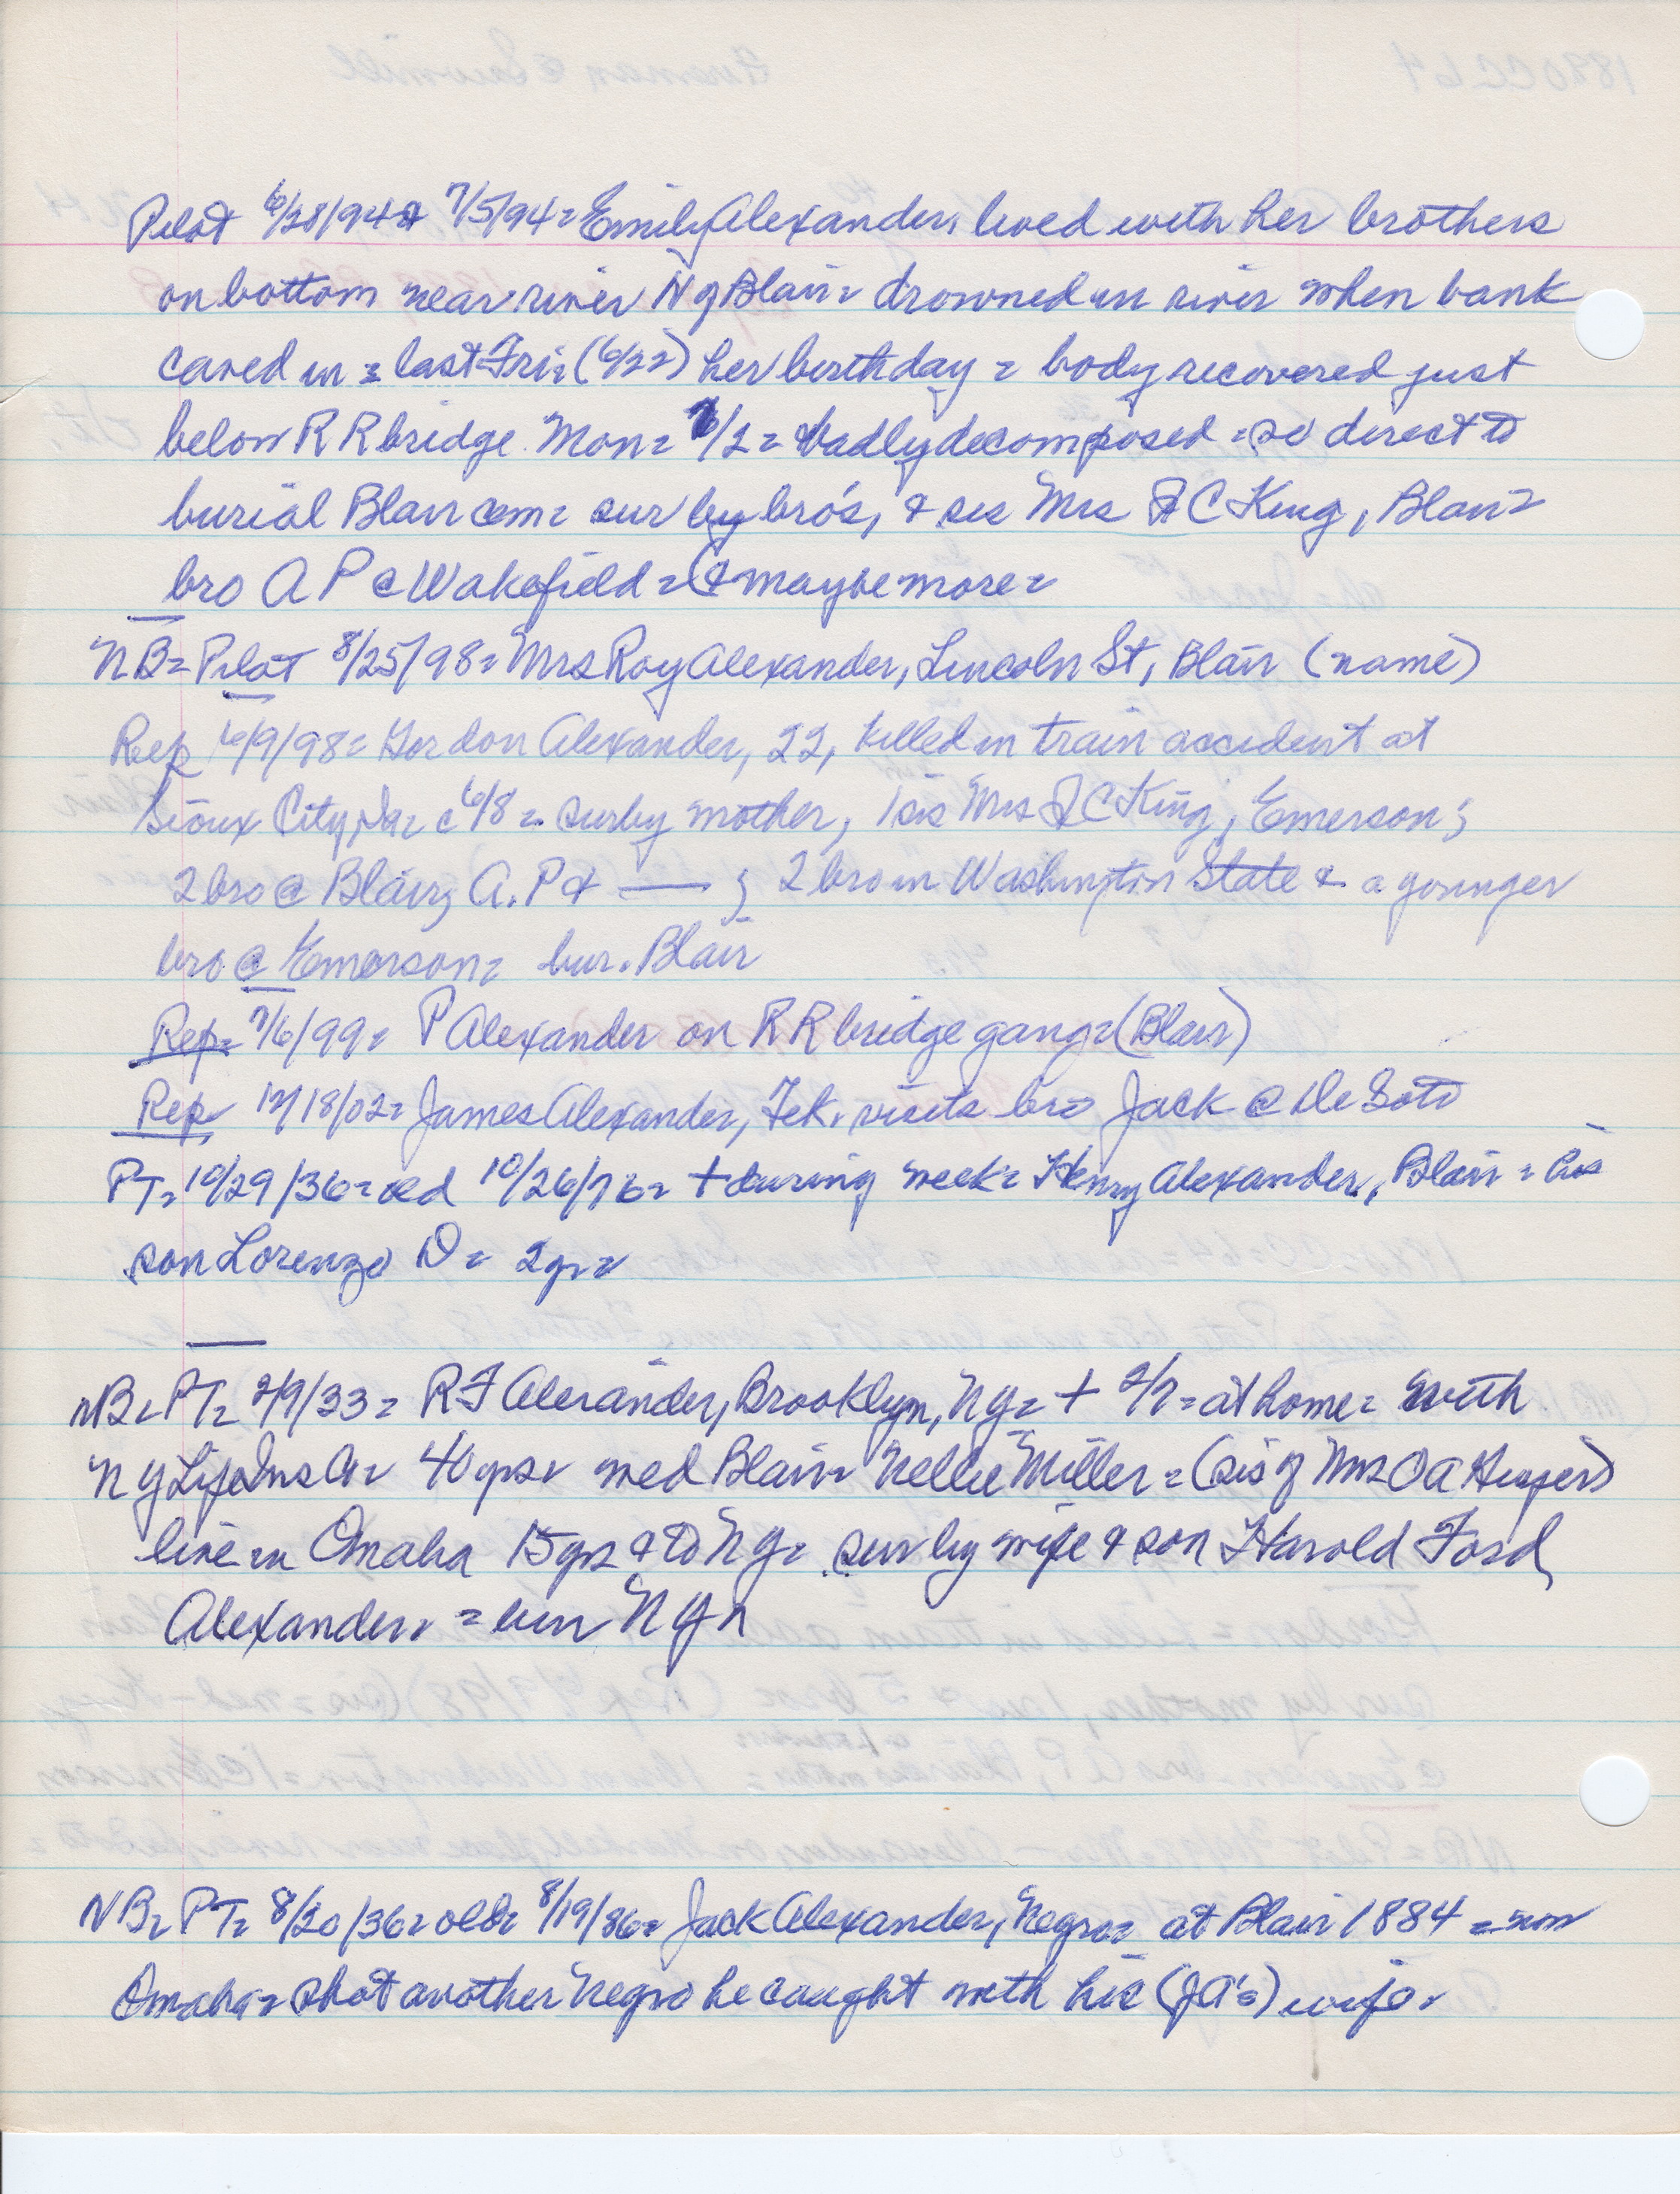 Pilot 6/28/94 & 7/5/94 = Emily Alexander, lived with her brothers
on bottom near river N of Blair = drowned in river when bank
caved in = last Fri = (6/22) her birthday = body recovered just
below RR bridge Mon = 7/2 = badly decomposed = so direct to
burial Blair cem = sur by bro's, & sis Mrs J C King, Blair =
bro A P @ Wakefield = (& maybe more =
NB = Pilot 8/25/98 = Mrs Roy Alexander, Lincoln St, Blair (name)
Rep 6/9/98 = Gordon Alexander, 22, killed in train accident at
Sioux City, Ia = c 6/8 = sur by mother, 1 sis Mrs J C King, Emerson;
2 bro @ Blair, A.P & — ; 2 bro in Washington State & a younger
bro @ Emerson = bur. Blair
Rep = 7/6/99 = P Alexander on RR bridge gang = (Blair)
Rep 12/18/02 = James Alexander, Tek. visits bro Jack @ De Soto
PT = 10/29/36 = old 10/26/76 = + during week = Henry Alexander, Blair = his
son Lorenzo D = 2 yr =
NB = PT = 2/9/33 = R F Alexander, Brooklyn, NY = + 2/7 = at home = with
N Y Life Ins Co = 40 yrs = med Blair = Nellie Miller = (sis of Mrs O A
live in Omaha 15 yrs & to NY = sur by wife & son Harold Ford
Alexander = bur NY =
NB = PT = 8/20/36 = old = 8/19/86 = Jack Alexander, Negro = at Blair 1884 = now
Omaha = shot another Negro he caught with his (JA's) wife =